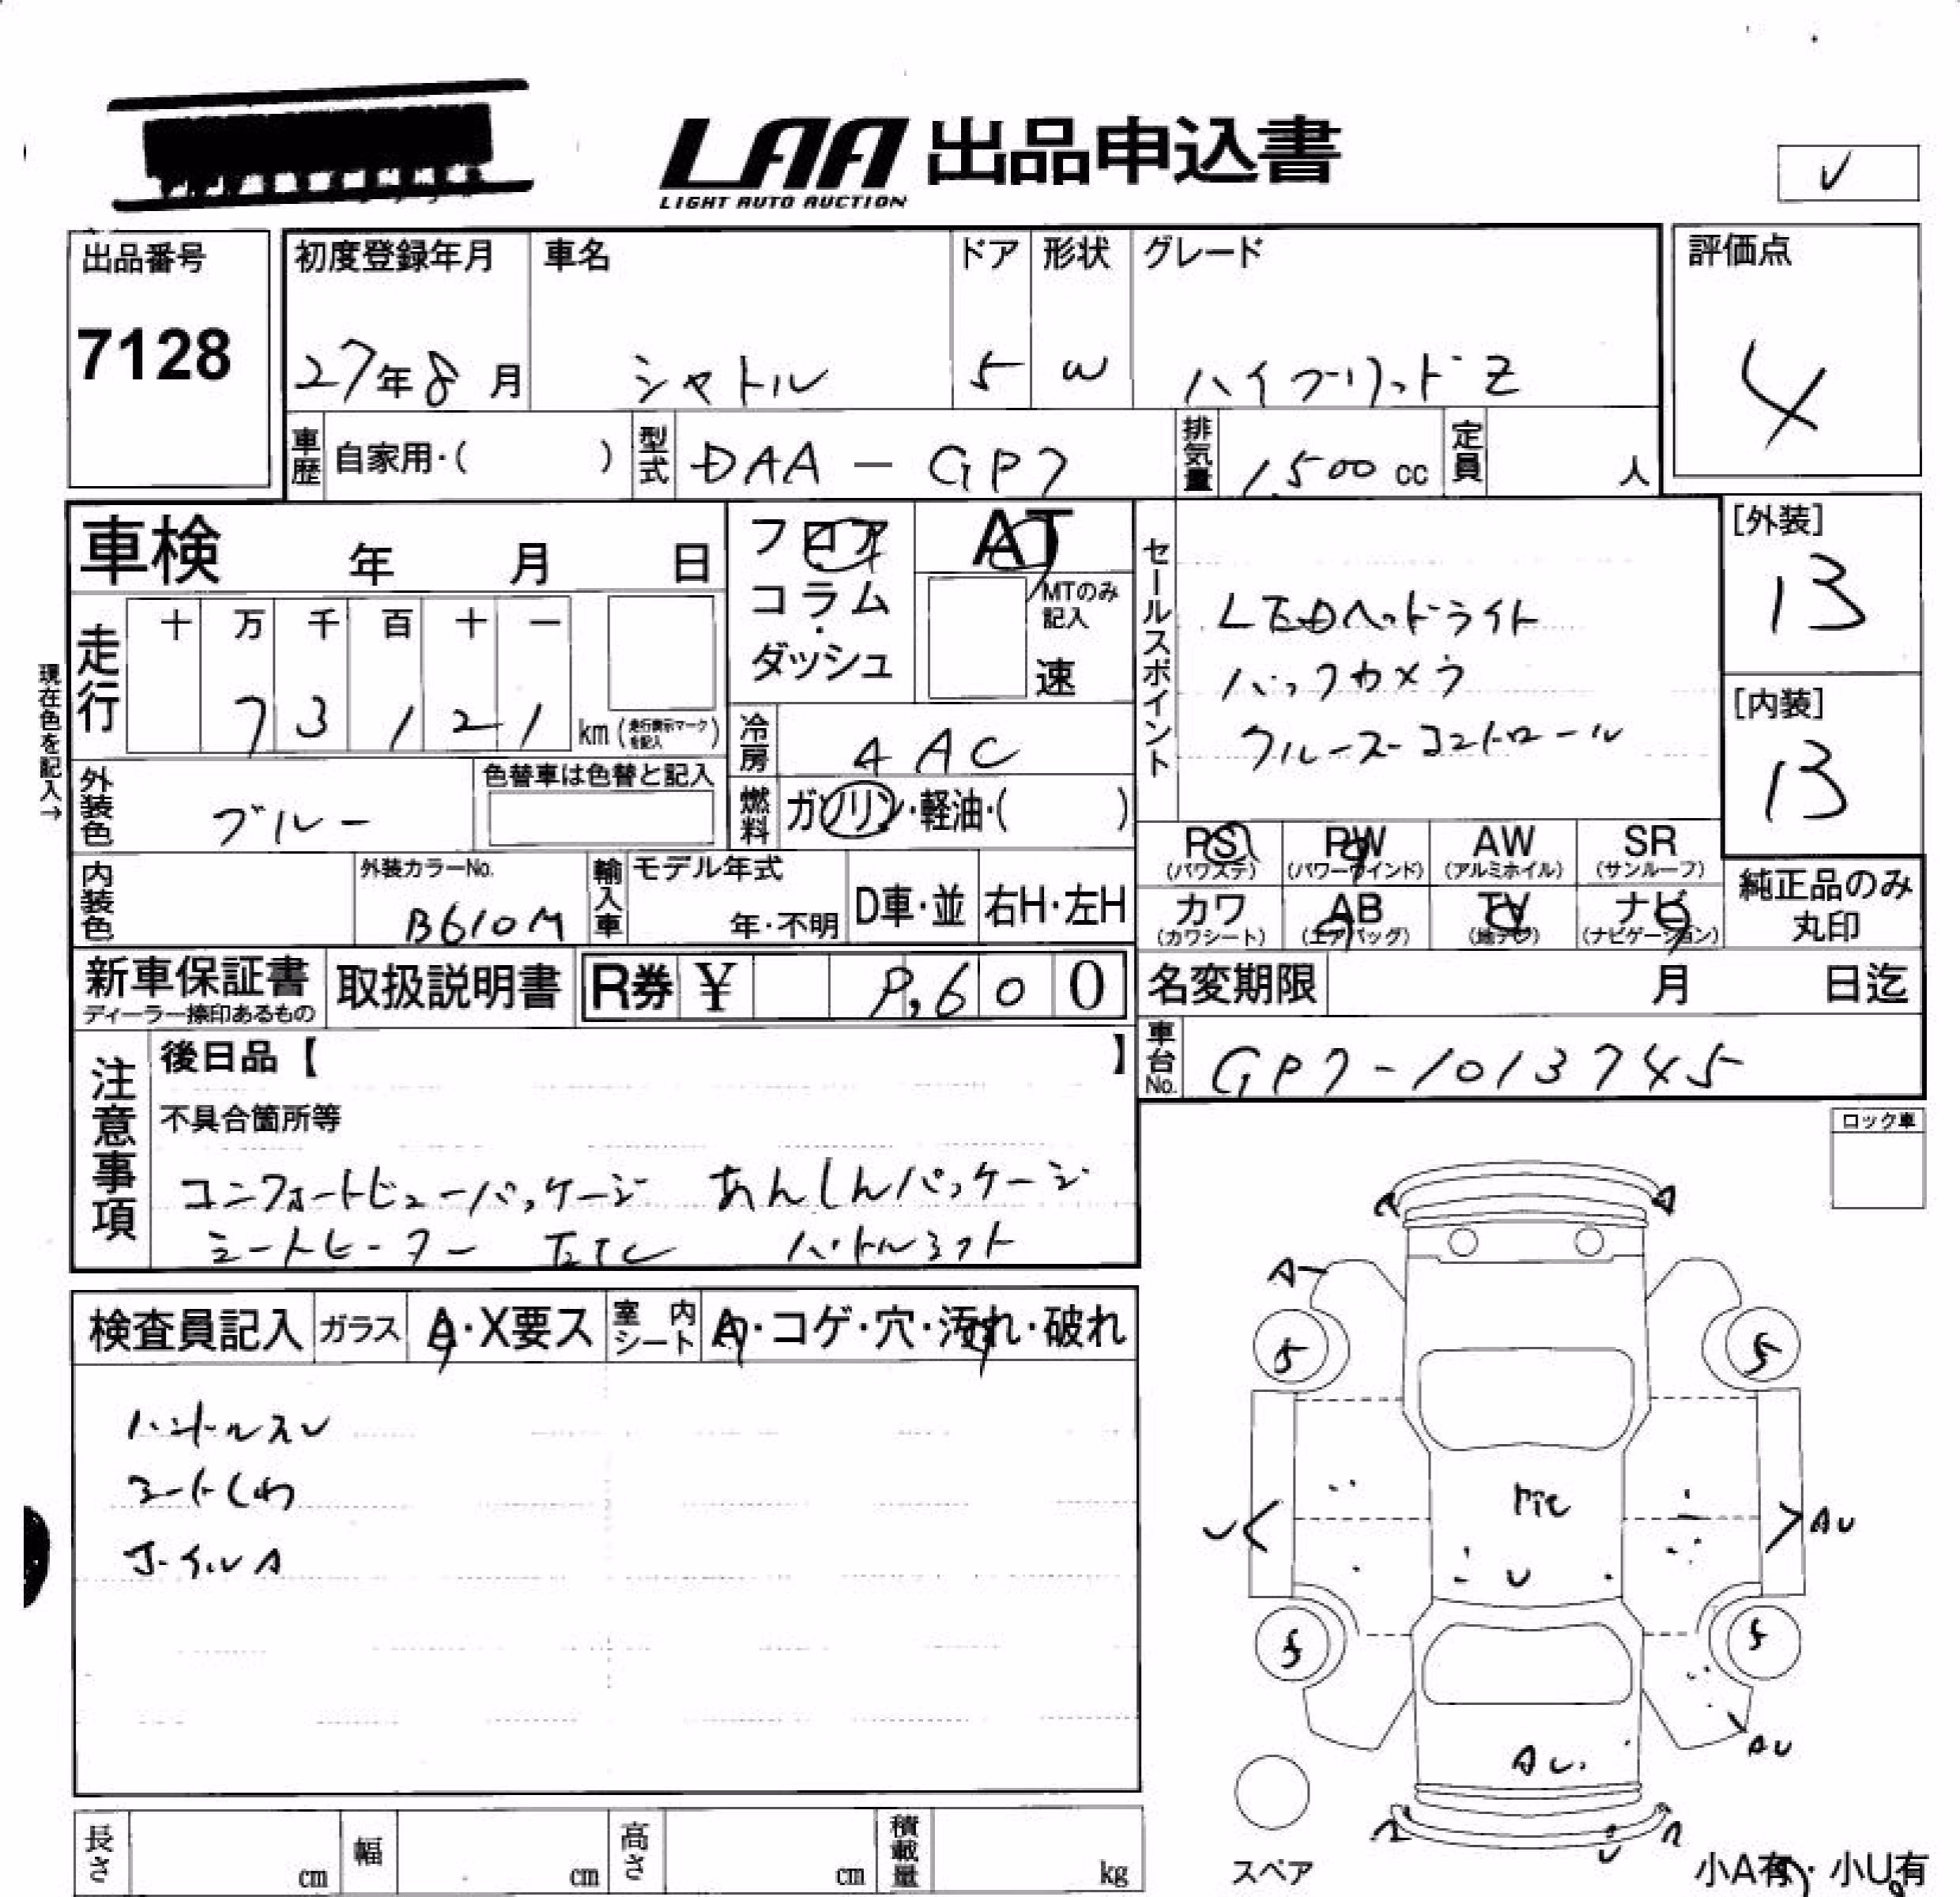 LAA 出品申込書
LIGHT AUTO AUCTION
レ
出品番号
7128
初度登録年月 車名 ドア 形状 グレード
27年8月 シャトル 5 W ハイブリッドZ
評価点
4
車歴 自家用・( ) 型式 DAA-GP7 排気量 1,500cc 定員 人
車検 年 月 日
フロア
コラム
・
ダッシュ
AT
MTのみ記入
速
セールスポイント
LEDヘッドライト
バックカメラ
クルーズコントロール
[外装]
13
[内装]
13
現在色を記入→
走行 十 万 千 百 十 一
73121 km(走行表示マークを記入)
冷房 AAC
外装色 ブルー
色替車は色替と記入
燃料 ガソリン・軽油・( )
PS(パワステ) PW(パワーウインド) AW(アルミホイル) SR(サンルーフ)
カワ(カワシート) AB(エアバッグ) TV(地デジ) ナビ(ナビゲーション)
純正品のみ
丸印
内装色 外装カラーNo. B610M
輸入車 モデル年式 年・不明 D車・並 右H・左H
新車保証書
ディーラー捺印あるもの
取扱説明書 R券 ¥ 9,600
名変期限 月 日迄
車台No. GP7-1013745
注意事項
後日品【 】
不具合箇所等
コンフォートビューパッケージ あんしんパッケージ
シートヒーター ETC パドルシフト
ロック車
検査員記入 ガラス A・X要ス 室内シート A・コゲ・穴・汚れ・破れ
ハンドルスレ
シートしわ
ホイルA
A
5 5
U AU
U
5 5
AU
AU
U
スペア
小A有・小U有
長さ cm 幅 cm 高さ cm 積載量 kg